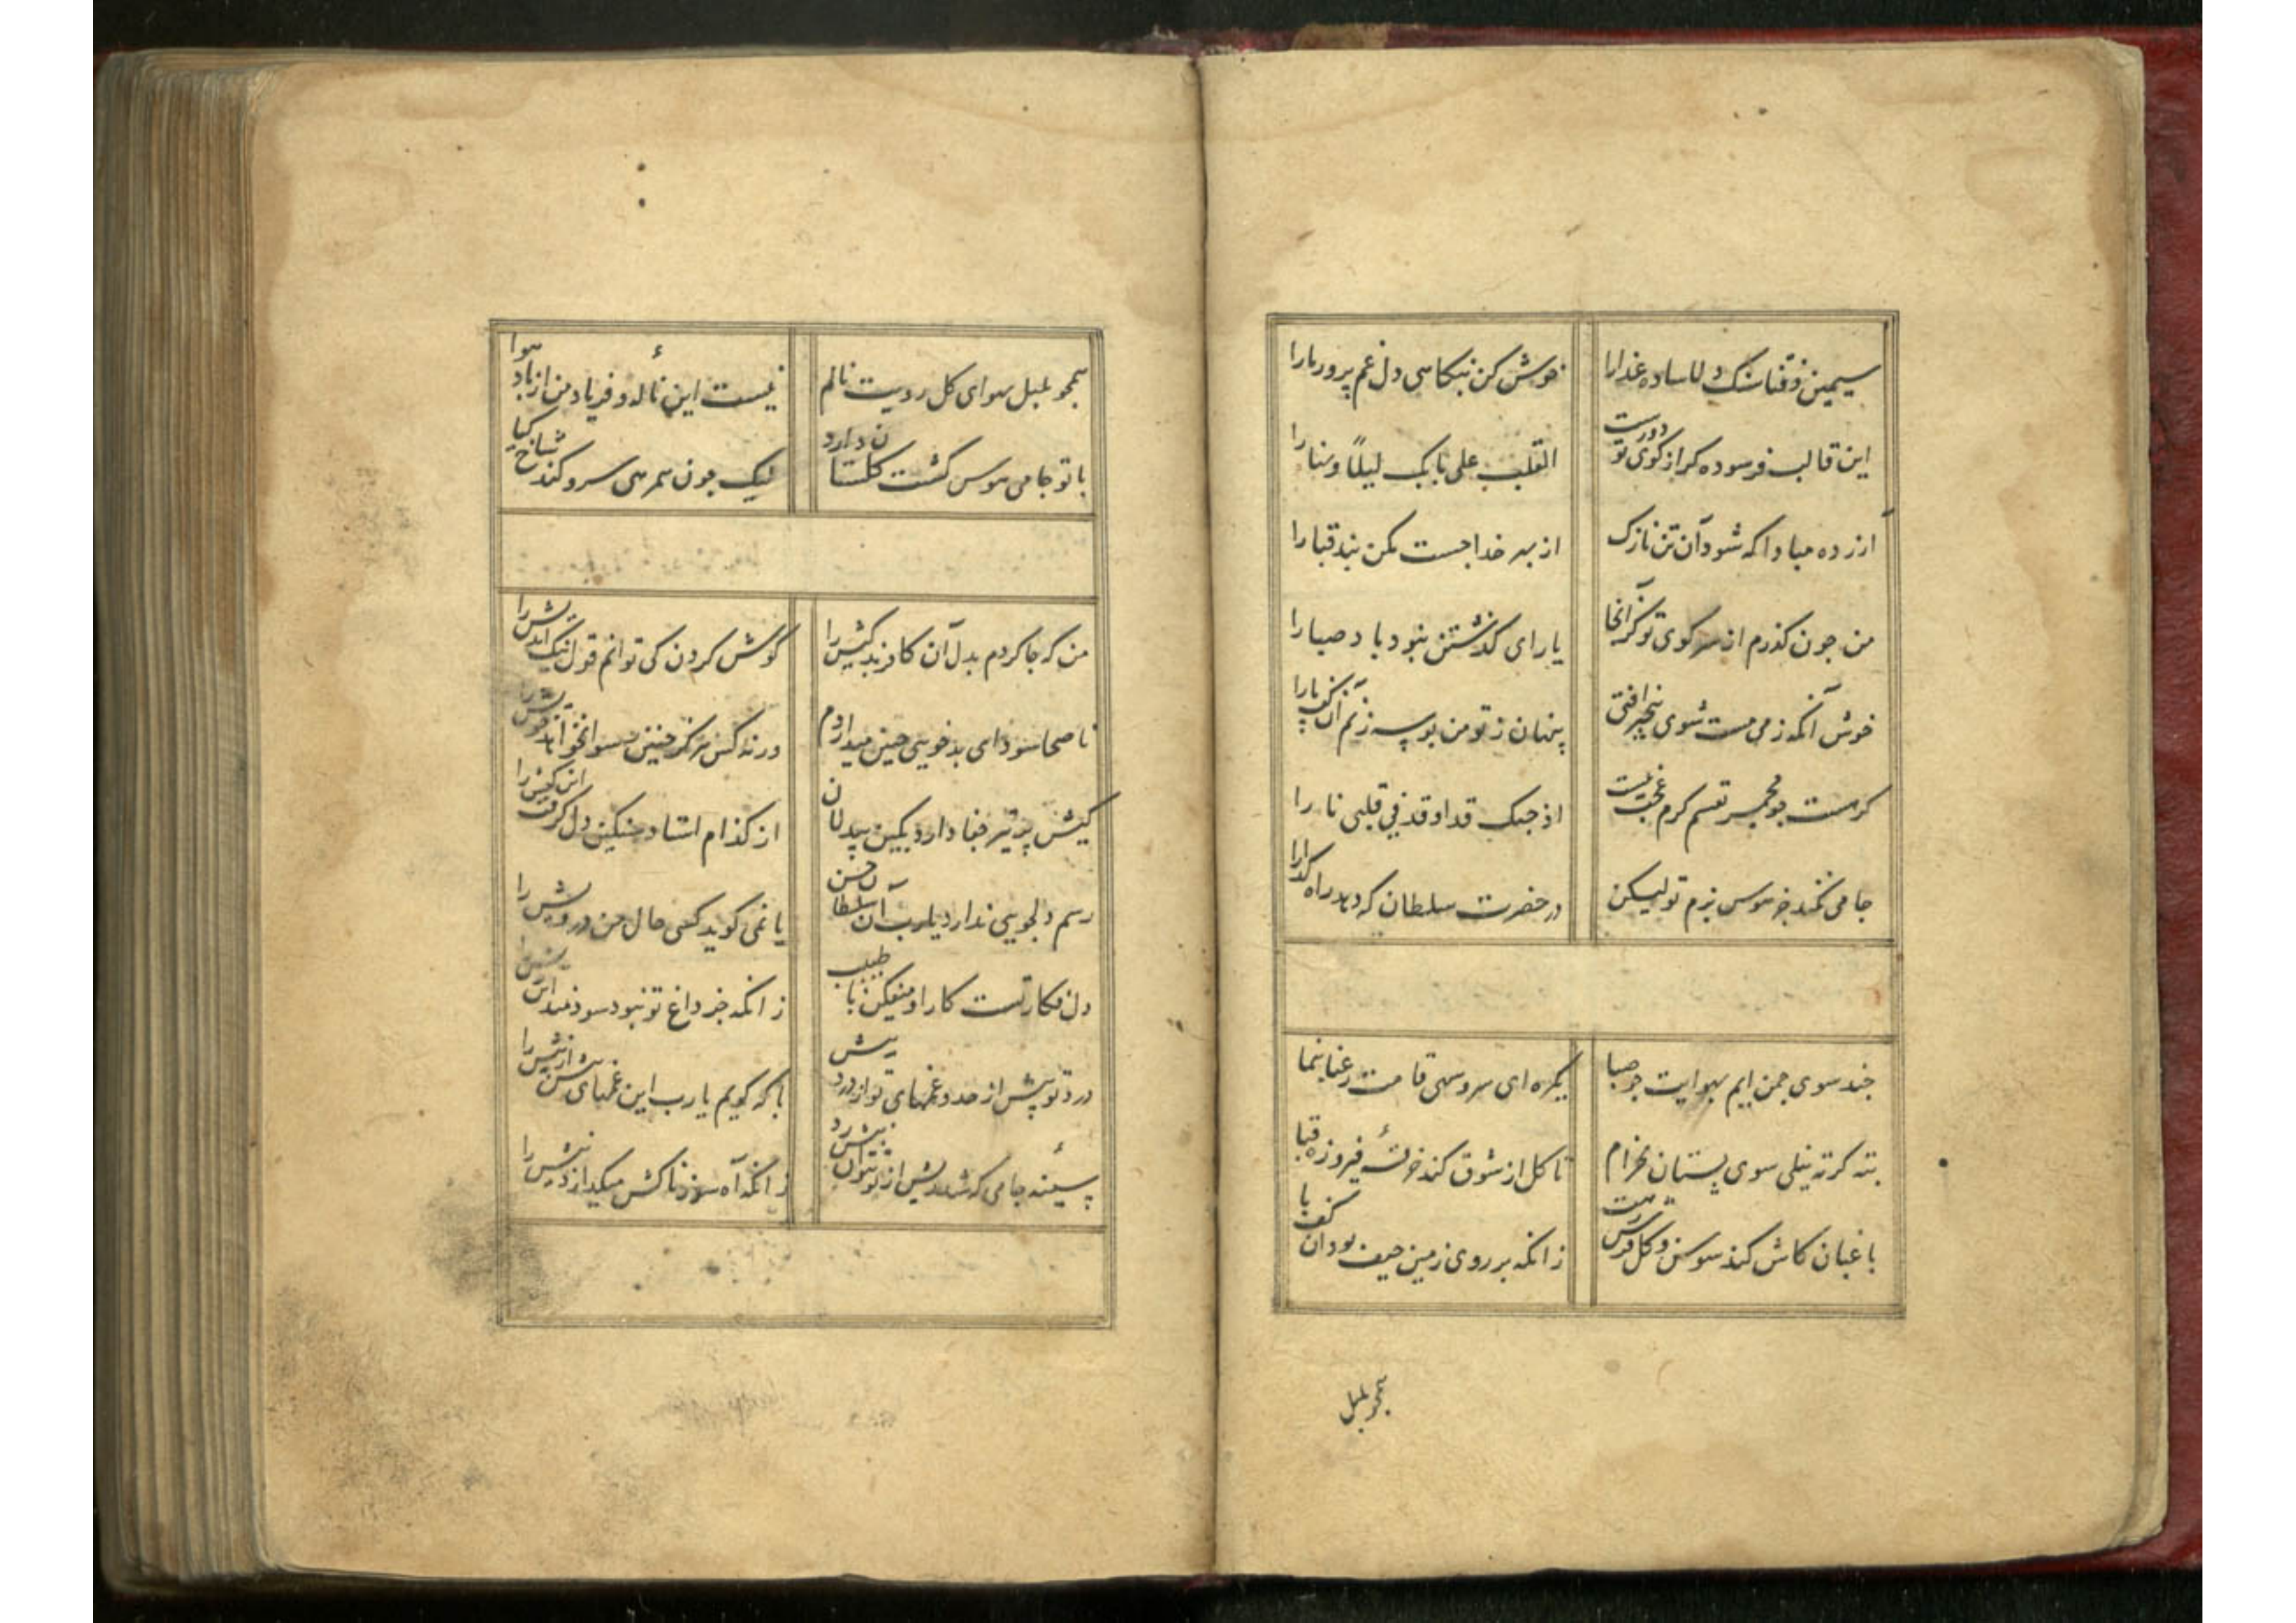 سیمین ذقنا سنک دلا ساده عذارا
خوش کن بنکاهی دل غم پرور مارا
این قالب فرسوده کر از کوی تو دورست
القلب علی بابک لیلًا و نهارا
آزرده مبادا که شود آن تن نازک
از بهر خدا جست مکن بند قبارا
من چون کذرم از سر کوی تو کز آنجا
یارای کذشتن نبود باد صبارا
خوش آنکه ز می مست شوی بیخبر افتی
پنهان ز تو من بوسه زنم آن کف پارا
کر هست چو مجمر نفسم کرم عجب نیست
اذ حبک قد اوقد فی قلبی نارا
جامی نکند جز هوس بزم تو لیکن
در حضرت سلطان که دهد راه کدارا
چند سوی چمن ایم بهوایت چو صبا
یکره ای سرو سهی قامت رعنا بنما
بته کرته نیلی سوی بستان بخرام
تا کل از شوق کند خرقهٔ فیروزه قبا
باغبان کاش کند سوسن و کل فرش رهت
زانکه بر روی زمین حیف بود آن کف پا
همچو بلبل
همچو بلبل بهوای کل رویت نالم
نیست این ناله و فریاد من از باد هوا
با تو جامی هوس کشت کلستان دارد
لیک چون همرهی سرو کند شاخ کیا
من که جا کردم بدل آن کافر بدکیش را
کوش کردن کی توانم قول نیک اندیش را
ناصحا سودای بدخویی چنین میدارم
ورنه کس هرکز چنین رسوا نخواهد خویش را
کیش پر تیر جفا دارد بکین بیدلان
از کدام استاد سنکین دل کرفت این کیش را
رسم دلجویی ندارد یارب آن سلطان حسن
یا نمی کوید کسی حال من درویش را
دل فکار تست کار او میفکن با طبیب
زانکه جز داغ تو نبود سودمند این ریش را
درد تو بیش از حد و غمهای تو از درد بیش
با که کویم یارب این غمهای بیش از بیش را
سینه جامی که شد ریش از تو نتوان نیش زد
زانکه آه سوزناکش میکدازد نیش را